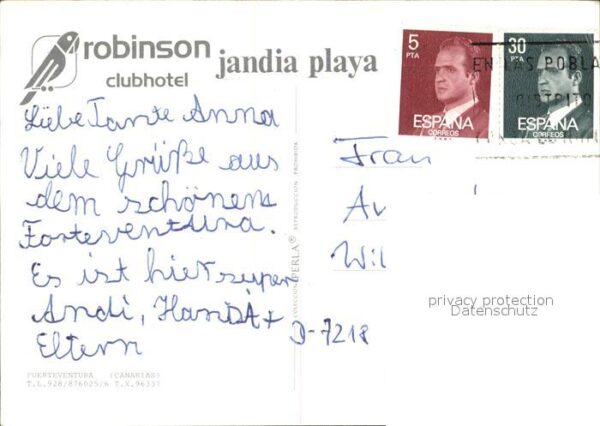 robinson
clubhotel
jandia playa
Liebe Tante Anna
Viele Grüße aus
dem schönens
Forteventura.
Es ist hier super
Andi, Hansi +
Eltern
FUERTEVENTURA (CANARIAS)
T.L.928/876025/6 T.X.96337
PERLA®
REPRODUCCION PROHIBIDA
5
PTA
ESPAÑA
CORREOS
30
PTA
ESPAÑA
CORREOS
EN LAS POBLA
DISTRITO
Frau
Av
Wil
D-7218
privacy protection
Datenschutz